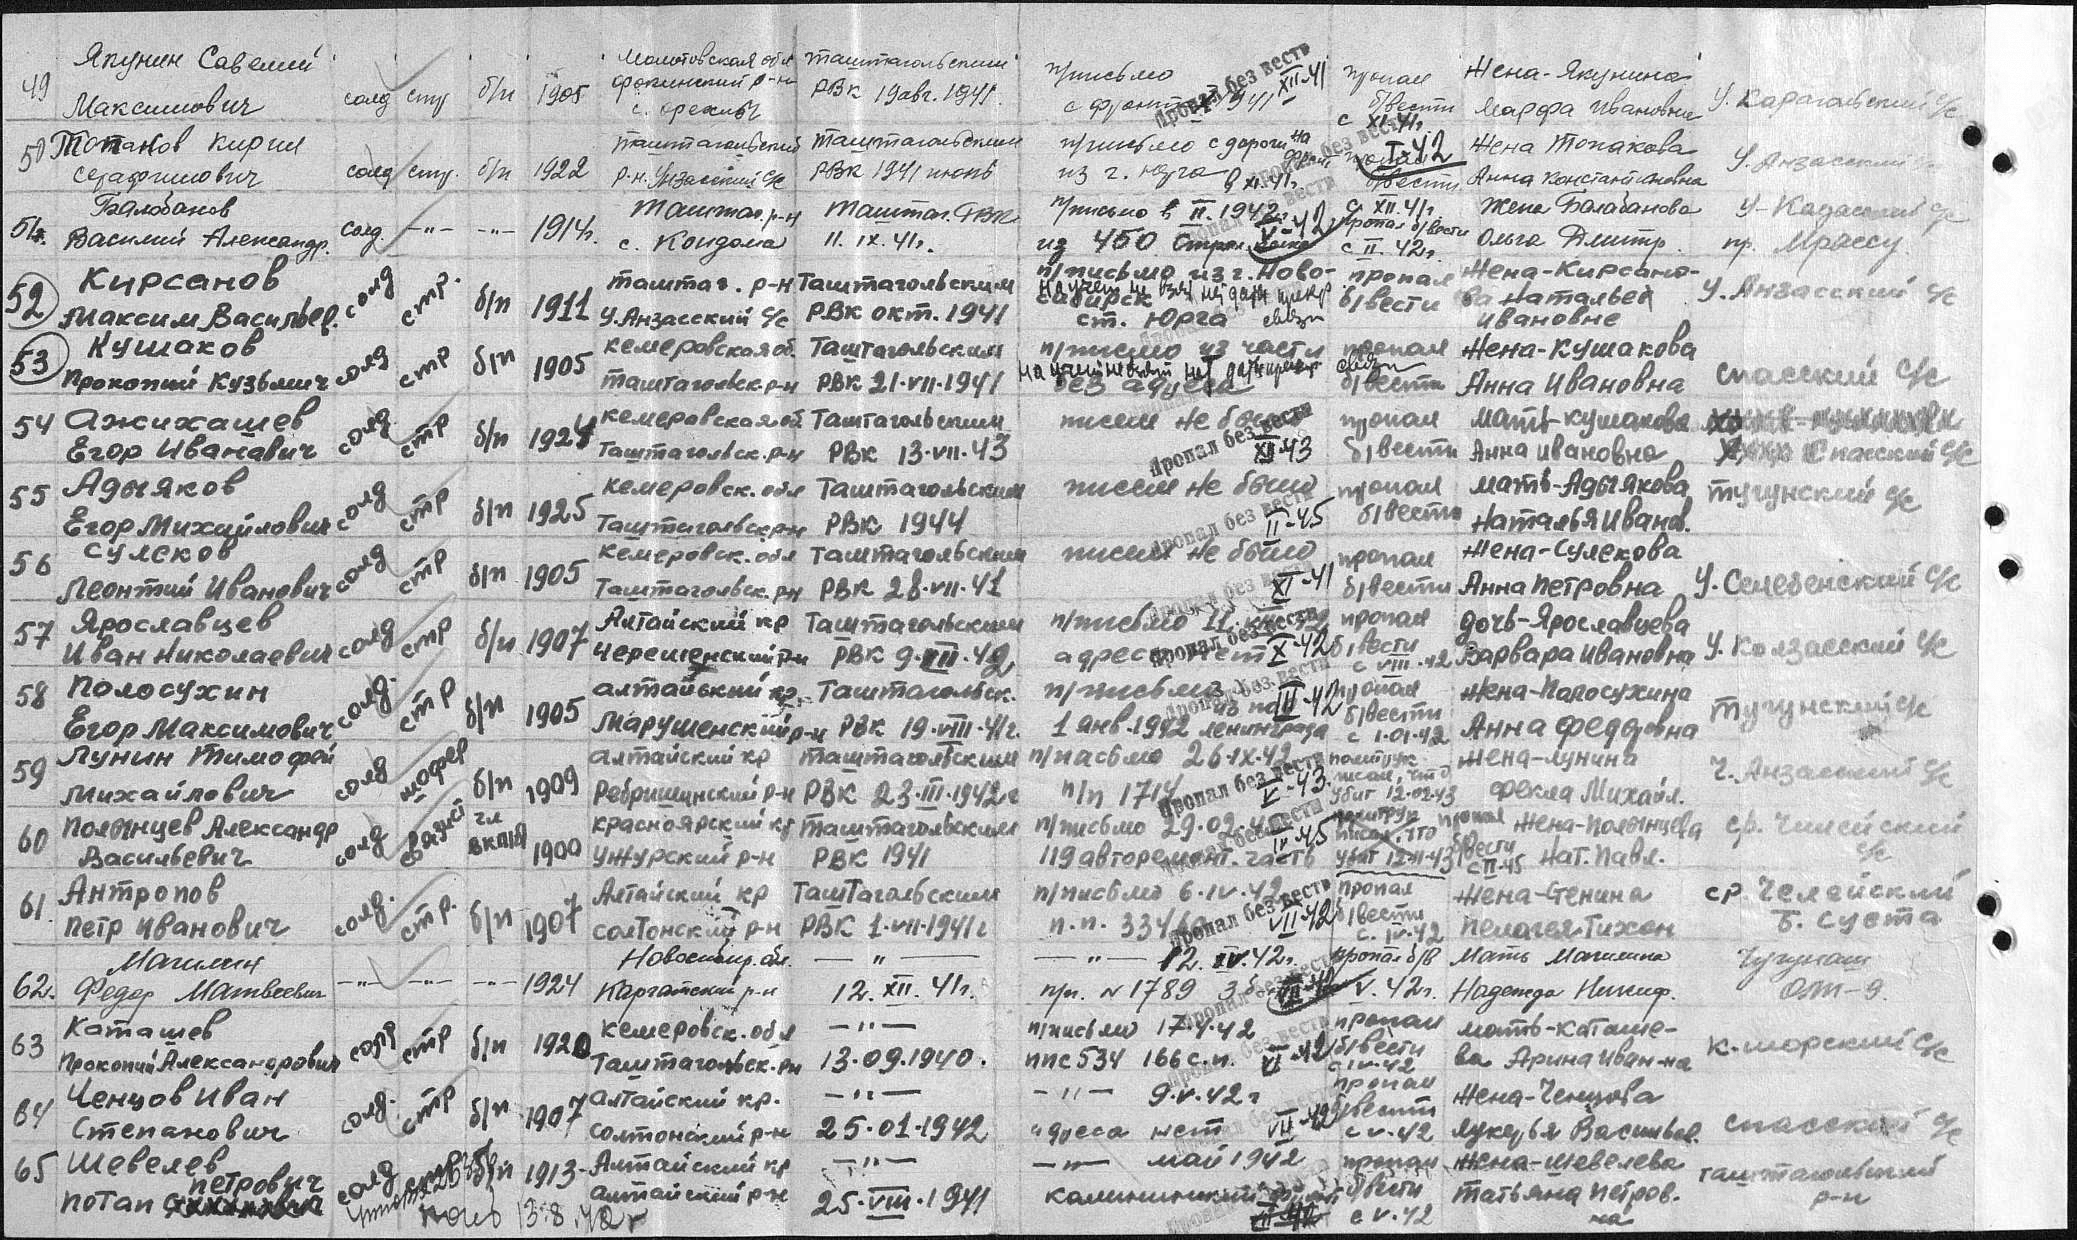 49 Якунин Савелий Максимович солд стр б/п 1905 Молотовская обл р-н с. Таштагольским РВК 19 авг. 1941 п/письмо с фронта 1941 Пропал без вести XII-41 пропал б/вести с XI.41г Жена-Якунина Марфа Ивановна У. Карагольский с/с
50 Кирил Серафимович солд стр. б/п 1922 Таштагольский р-н. Узасский с/с Таштагольским РВК 1941 июнь п/письмо с дороги на фронт из г. Юрга в XI.41г. I-42 пропал б/вести с XII.41г Жена Топакова Анна Константиновна У. Анзасский
51. Балобанов Василий Александр. солд. -"- -"- 1914г. Таштаг. р-н с. Кондома Таштаг. РВК 11. IX. 41г. п/письмо в II. 1942г из 450 V-42 пропал б/вести с II. 42г. Жена Балабанова Ольга Дмитр. У-Кадасский с/с пр. Мрассу
52 Кирсанов Максим Васильев. солд стр. б/п 1911 Таштаг. р-н У. Анзасский с/с Таштагольским РВК окт. 1941 п/письмо из г. Ново-
сибирск ст. Юрга связи пропал б/вести Жена-Кирсано-
ва Наталья Ивановне У. Анзасский с/с
53 Кушаков Прокопий Кузьмич солд стр б/п 1905 Кемеровская об. Таштагольск. р-н Таштагольским РВК 21-VII-1941 п/письмо из части без адреса связи пропал б/вести Жена-Кушакова Анна Ивановна Спасский с/с
54 Ажихашев Егор Иванович солд. стр б/п 1924 Кемеровская об Таштагольск. р-н Таштагольским РВК 13-VII-43 писем не было Пропал без вести XII-43 пропал б/вести Мать-Кушакова Анна Ивановна Спасский с/с
55 Адыяков Егор Михайлович солд стр б/п 1925 Кемеровск. обл Таштагольск р-н Таштагольским РВК 1944 писем не было Пропал без вести II-45 пропал б/вести Мать-Адыякова Наталья Иванов. Тугунский с/с
56 Сулеков Леонтий Иванович солд стр б/п 1905 Кемеровск. обл Таштагольск. р-н Таштагольским РВК 28-VII-41 писем не было Пропал без вести XI-41 пропал б/вести Жена-Сулекова Анна Петровна У. Селезенский с/с
57 Ярославцев Иван Николаевич солд стр б/п 1907 Алтайский кр р-н Таштагольским РВК 9-VII-42 п/письмо адреса нет Пропал без вести X-42 пропал б/вести с VIII-42 дочь-Ярославцева Варвара Ивановна У. Колзасский с/с
58 Полосухин Егор Максимович солд. стр б/п 1905 Алтайский кр. Марушенский р-н Таштагольск. РВК 19-VIII-41г. п/письмо 1 янв. 1942 Ленинграда без вести III-42 пропал б/вести с 1-01-42 Жена-Полосухина Анна Федоровна Тугунский с/с
59 Лунин Тимофей Михайлович солд шофер б/п 1909 Алтайский кр Ребрихинский р-н Таштагольским РВК 23-III-1942г п/письмо 26-IX-42 п/п 1714 Пропал без вести V-43 политрук писал, что убит 12-02-43 Жена-Лунина Фекла Михайл. У. Анзасский с/с
60 Полынцев Александр Васильевич солд чл ВКП/б/ 1900 Красноярский кр Ужурский р-н Таштагольским РВК 1941 п/письмо 29-02 119 авторемонт. часть IV-45 политрук писал что убит 12-11-43 пропал б/вести с II-45 Жена-Полынцева Нат. Павл. ср. Чилейский с/с
61. Антропов Петр Иванович солд. стр. б/п 1907 Алтайский кр Солтонский р-н Таштагольским РВК 1-VII-1941г п/письмо 6-IV-42 п.п. 3346 Пропал без вести VII-42 пропал б/вести с. IV-42 Жена-Стенина Пелагея Тихон ср. Челейский Б. Суета
62. Магилин Федор Матвеевич -"- -"- -"- 1924 Новосибир. обл. Каргатский р-н -"- 12. XII. 41г. -"- 12. IV. 42г. п/п. №1789 пропал б/в V. 42г. Мать Магилина Надежда Никиф. Чугунаш ОЛП-9.
63 Каташев Прокопий Александрович солд стр б/п 1920 Кемеровск. обл Таштагольск. р-н -"- 13.09.1940. п/письмо 17-4-42 ппс 534 166 с.п. VI-42 пропал б/вести с IV-42 мать-Каташе-
ва Арина Иван-на К-Шорский с/с
64 Ченцов Иван Степанович солд. стр б/п 1907 Алтайский кр. Солтонский р-н -"- 25-01-1942 -"- 9-V-42г адреса нет VII-42 пропал б/вести с V-42 Жена-Ченцова Лукерья Васильев. Спасский с/с
65 Шевелев Потап Петрович солд б/п 1913 Алтайский кр Алтайский р-н -"- 25-VIII-1941 -"- май 1942 Калининский фронт VII-42 пропал б/вести с V-42 Жена-Шевелева Татьяна Петров.
на Таштагольский р-н
13.8.42г